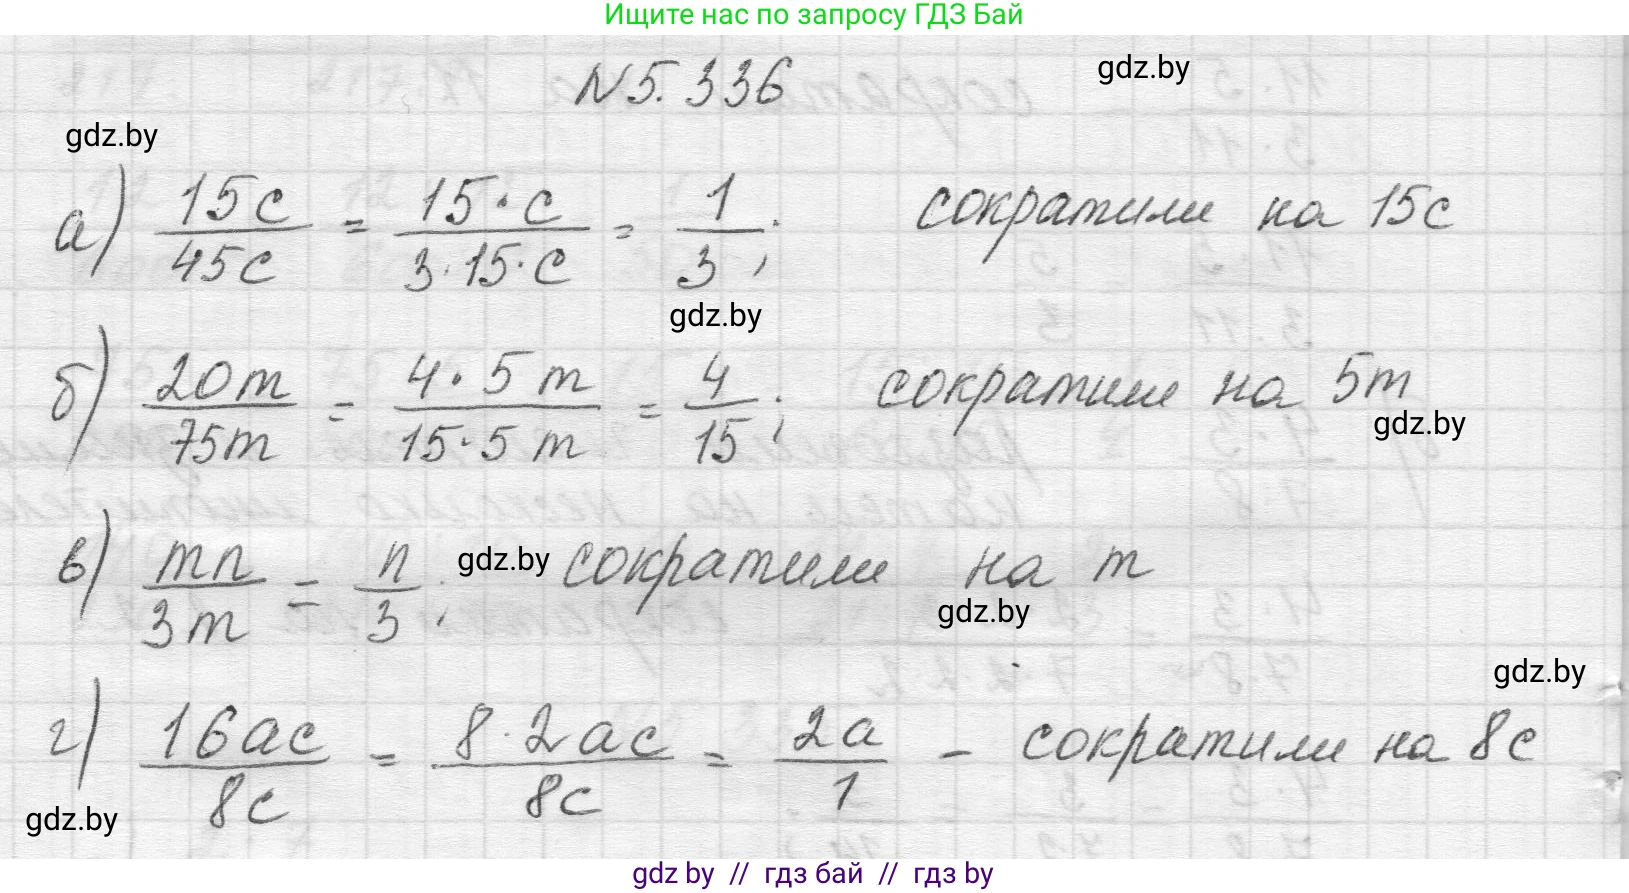 Ищите нас по запросу ГДЗ Бай
N 5.336
gdz.by
gdz.by
а) 15c/45c = 15·c/3·15·c = 1/3; сократили на 15с
gdz.by
б) 20m/75m = 4·5m/15·5m = 4/15; сократили на 5m
gdz.by
в) mn/3m = n/3; gdz.by сократили на m
gdz.by
gdz.by
г) 16ac/8c = 8·2ac/8c = 2a/1 - сократили на 8с
gdz.by
gdz by // гдз бай // гдз by